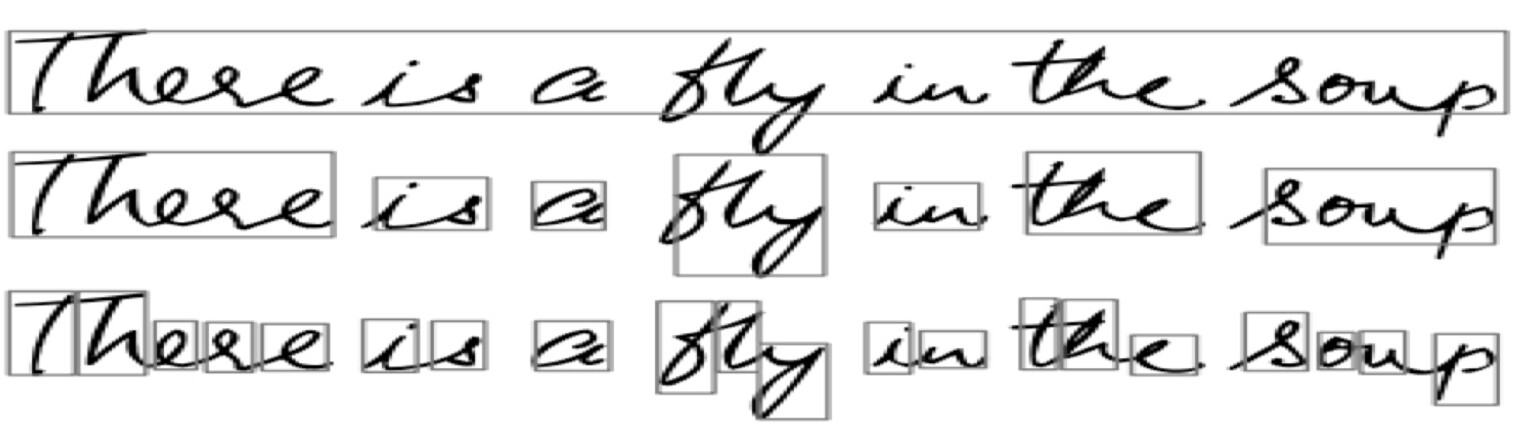 There is a fly in the soup
There is a fly in the soup
There is a fly in the soup